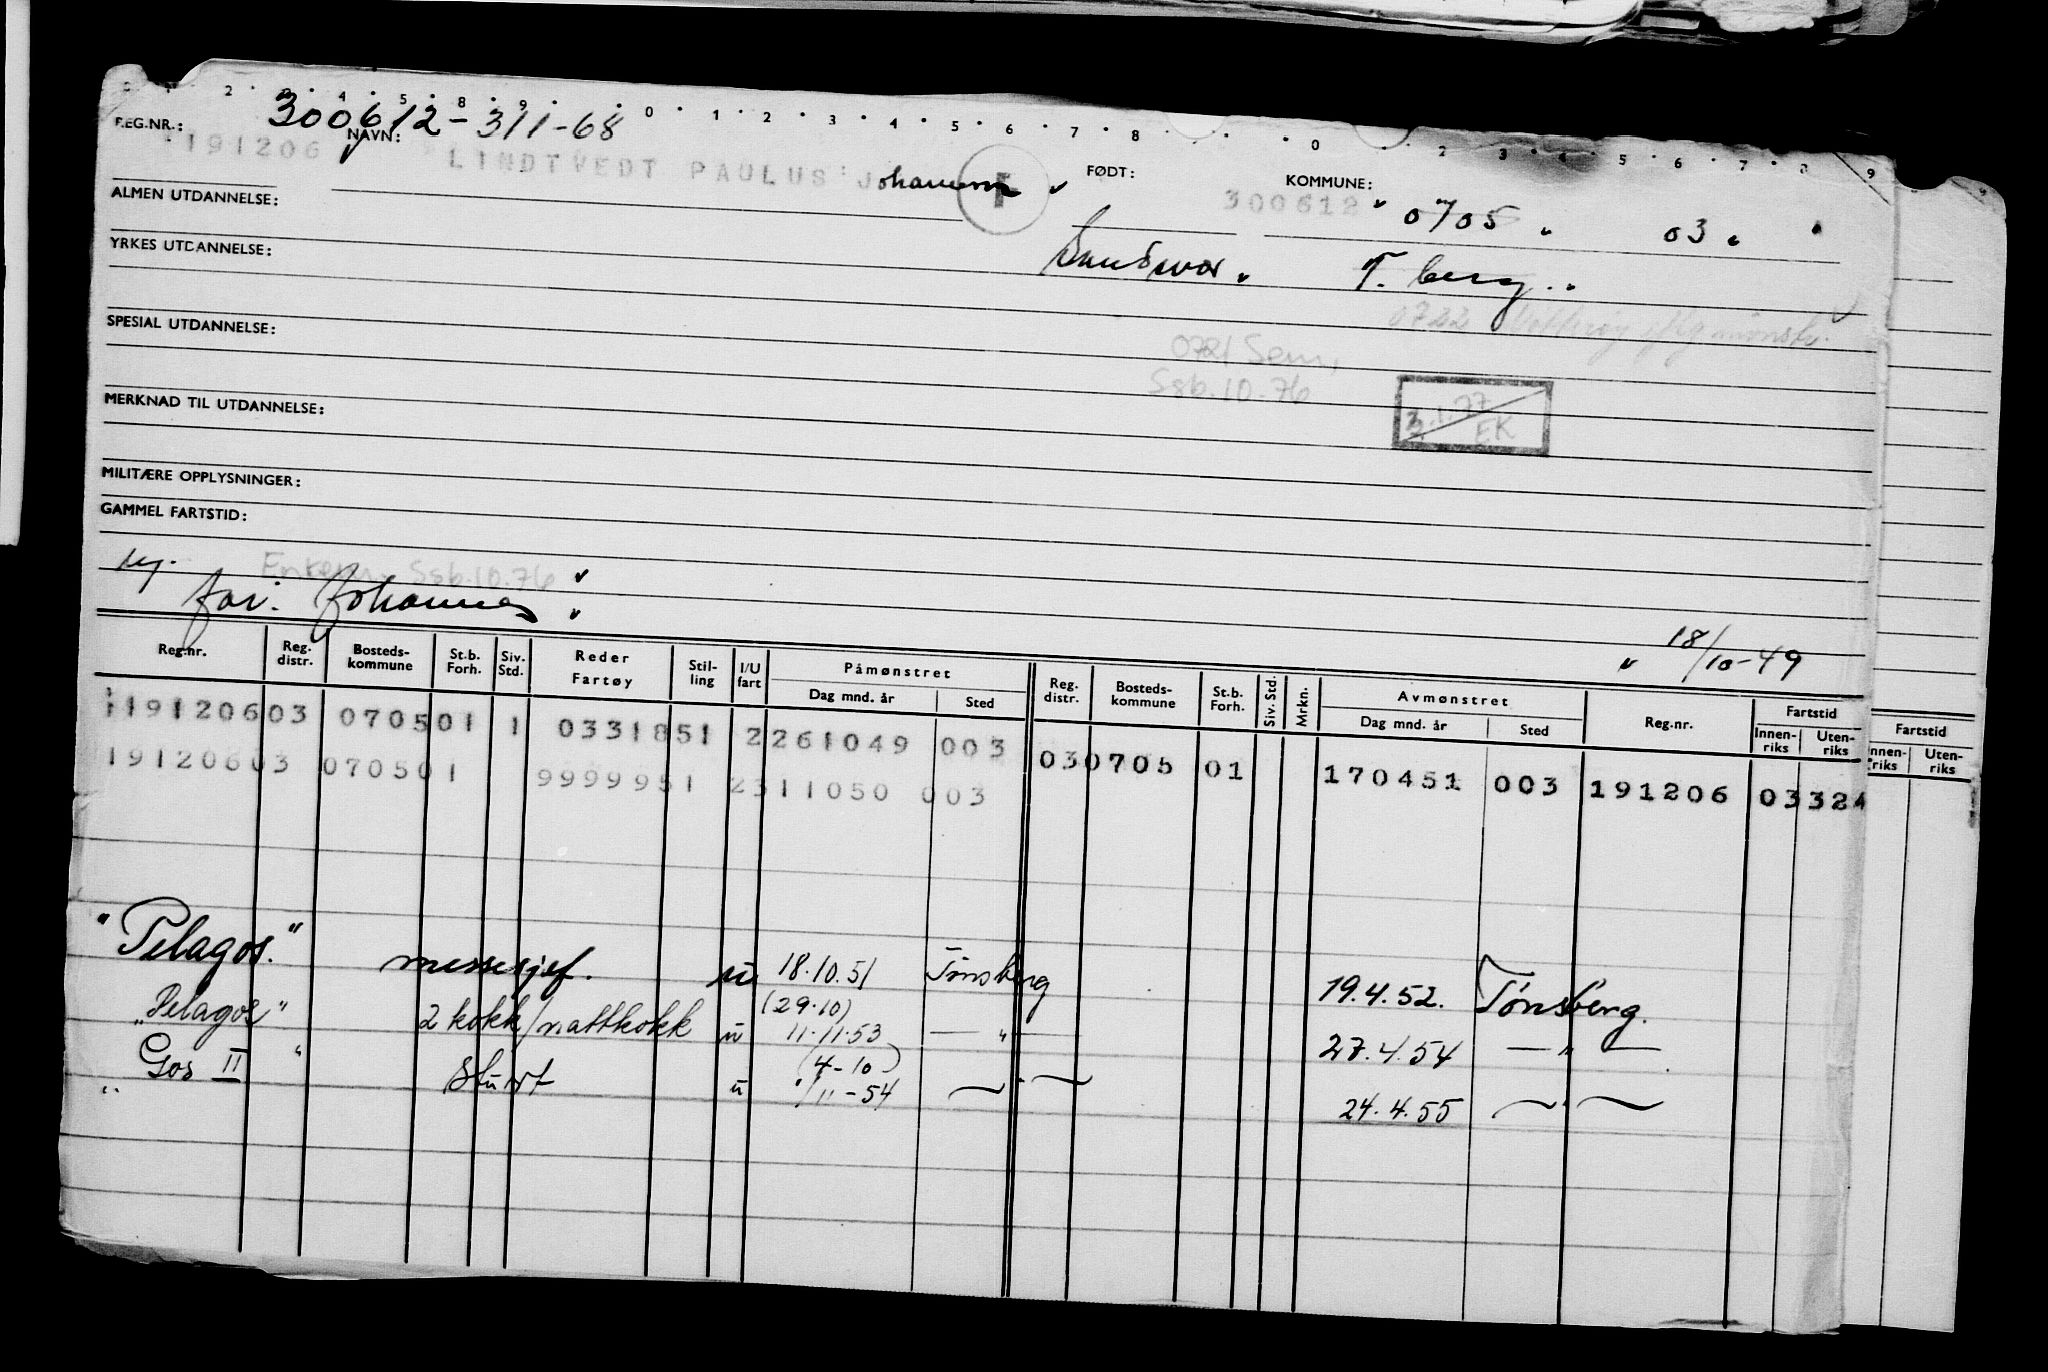 0 1 2 3 4 5 8 9 0 1 2 3 4 5 6 7 8 0 2 3 4 5 6 7 8 9
300612-311-68
REG.NR.: NAVN: FØDT: KOMMUNE:
191206 LINDTVEDT PAULUS J 300612 0705 03
ALMEN UTDANNELSE:
Sandsvær T.berg
YRKES UTDANNELSE:
0722
SPESIAL UTDANNELSE:
0721 Sem,
Ssb.10.76
3.1.77
EK
MERKNAD TIL UTDANNELSE:
MILITÆRE OPPLYSNINGER:
GAMMEL FARTSTID:
Ssb.10.76
far: Johannes
18/10-49
Reg.nr. Reg. distr. Bosteds-kommune St.b. Forh. Siv. Std. Reder Fartøy Stil-ling I/U fart Påmønstret Dag mnd. år Sted Reg. distr. Bosteds-kommune St.b. Forh. Siv. Std. Mrkn. Avmønstret Dag mnd. år Sted Reg.nr. Fartstid Innen-riks Uten-riks Fartstid Innen-riks Uten-riks
19120603 070501 1 0331851 2261049 003 030705 01 170451 003 191206 03324
19120603 070501 9999951 2311050 003
"Pelagos." messesjef. u 18.10.51 Tønsberg 19.4.52. Tønsberg.
(29.10)
"Pelagos" 2 kokk/nattkokk u 11.11.53 — " — 27.4.54 — " —
(4-10)
Gos II " stuert u /11-54 — " — 24.4.55 — " —